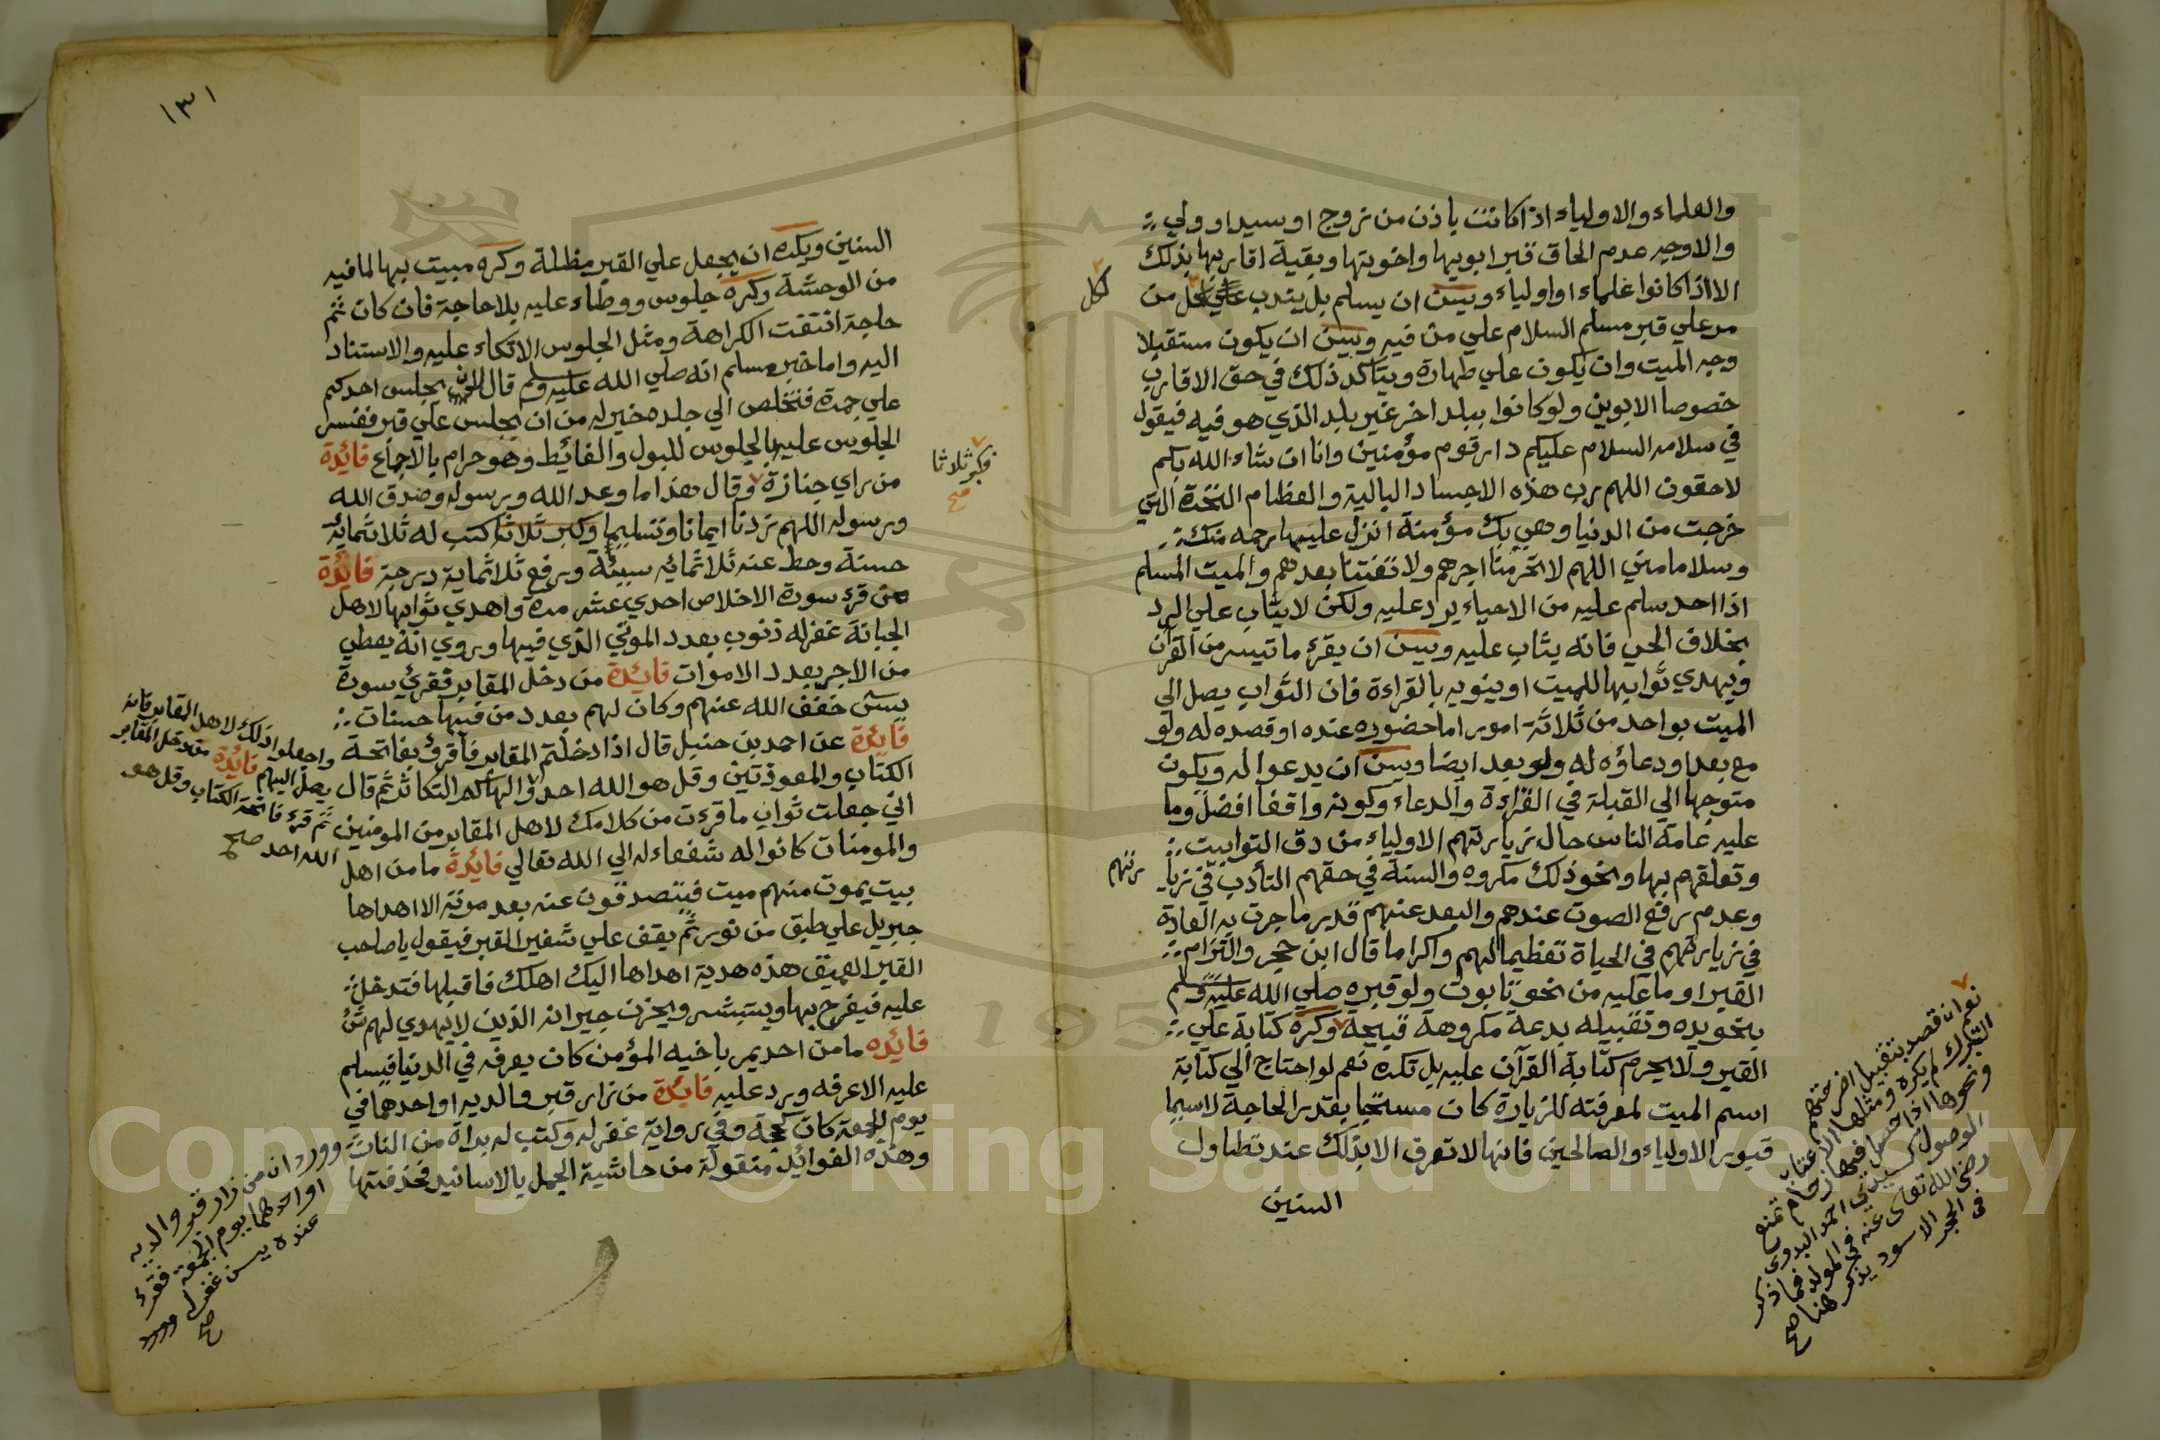 والعلماء والاولياء اذا كانت باذن من زوج او سيد او ولي
والاوجه عدم الحاق قبر ابويها واخوتها وبقية اقاربها بذلك
الا اذا كانوا علماء او اولياء ويسن ان يسلم بل يندب لكل من
مر علي قبر مسلم السلام علي من فيه ويسن ان يكون مستقبلا
وجه الميت وان يكون علي طهارة ويتأكد ذلك في حق الاقارب
خصوصا الابوين ولو كانوا ببلد اخر غير بلد الذي هو فيه فيقول
في سلامه السلام عليكم دار قوم مؤمنين وانا ان شاء الله بكم
لاحقون اللهم رب هذه الاجساد البالية والعظام النخرة التي
خرجت من الدنيا وهي بك مؤمنة انزل عليها رحمه منك
وسلاما مني اللهم لا تحرمنا اجرهم ولا تفتنا بعدهم والميت المسلم
اذا احد سلم عليه من الاحياء يرد عليه ولكن لا يثاب علي الرد
بخلاف الحي فانه يثاب عليه ويسن ان يقرء ما تيسر من القرآن
ويهدي ثوابها للميت او ينويه بالقراءة فان الثواب يصل الي
الميت بواحد من ثلاثة امور اما حضوره عنده او قصده له ولو
مع بعد او دعاؤه له ولو بعد ايضا ويسن ان يدعوا له ويكون
متوجها الي القبلة في القراءة والدعاء وكونه واقفا افضل وما
عليه عامة الناس حال زيارتهم الاولياء من دق التوابيت
وتعلقهم بها ونحو ذلك مكروه والسنة في حقهم التأدب في زيا
رتهم
وعدم رفع الصوت عندهم والبعد عنهم قدر ما جرت به العادة
في زيارتهم في الحياة تعظيما لهم واكراما قال ابن حجر والتزام
القبر او ما عليه من نحو تابوت ولو قبره صلي الله عليه وسلم
بنحو يده وتقبيله بدعة مكروهة قبيحة وكره كتابة علي
القبر ولا يحرم كتابة القرآن عليه بل تكره نعم لو احتاج الي كتابة
اسم الميت لمعرفته للزيارة كان مستحبا بقدر الحاجة لاسيما
قبور الاولياء والصالحين فانها لا تعرف الا بذلك عند تطاول
السنين
نعم ان قصد بتقبيل اضرحتهم
التبرك لم يكره ومثلها الاعتاب
ونحوها اذا حصل فيها زحام تمنع
الوصول كسيدي احمد البدوي
رضي الله تعالى عنه في المولد فما ذكر
في الحجر الاسود يذكر هنا صح
١٣١
السنين ويكره ان يجعل علي القبر مظلة وكره مبيت بها لما فيه
من الوحشة وكره جلوس ووطاء عليه بلا حاجة فان كان ثم
حاجة انتفت الكراهة ومثل الجلوس الاتكاء عليه والاستناد
اليه واما خبر مسلم انه صلي الله عليه وسلم قال لان يجلس احدكم
علي جمرة فتخلص الي جلده خير له من ان يجلس علي قبر ففسر
الجلوس عليه بالجلوس للبول والغائط وهو حرام بالاجماع فائدة
من راي جنازة وقال هذا ما وعد الله ورسوله وصدق الله
وكبر ثلاثا
صح
ورسوله اللهم زدنا ايمانا وتسليما وكبر ثلاثا كتب له ثلاثمائة
حسنة وحط عنه ثلاثمائه سيئة ورفع ثلاثماية درجة فائدة
من قرء سورة الاخلاص احدي عشر مرة واهدي ثوابها لاهل
الجبانة غفر له ذنوب بعدد الموتي الذي فيها وروي انه يعطي
من الاجر بعدد الاموات فائدة من دخل المقابر فقرئ سورة
يسن خفف الله عنهم وكان لهم بعدد من فيها حسنات
فائدة عن احمد بن حنبل قال اذا دخلتم المقابر فأقرؤ بفاتحة
الكتاب والمعوذتين وقل هو الله احد
واجعلوا ذلك لاهل المقابر فانه
يصل اليهم فائدة من دخل المقابر
ثم قرء فاتحة الكتاب وقل هو
الله احد صح
والهاكم التكاثر ثم قال
اني جعلت ثواب ما قرءت من كلامك لاهل المقابر من المومنين
والمومنات كانوا له شفعاء له الي الله تعالي فائدة ما من اهل
بيت يموت منهم ميت فيتصدقون عنه بعد موته الا اهداها
جبريل علي طبق من نور ثم يقف علي شفير القبر فيقول يا صاحب
القبر العميق هذه هدية اهداها اليك اهلك فاقبلها فتدخل
عليه فيفرح بها ويستبشر ويحزن جيرانه الذين لا يهدي لهم شئ
فائده ما من احد يمر باخيه المؤمن كان يعرفه في الدنيا فيسلم
عليه الا عرفه ويرد عليه فائدة من زار قبر والديه او احدهما في
يوم الجمعة كان كحجة وفي رواية غفر له وكتب له براة من النار
وهذه الفوائد منقولة من حاشية الجمل بالاسانيد فحذفتها
وورد ان من زار قبر والديه
او احدهما يوم الجمعة فقرء
عنده يسن غفر له وورد
صح